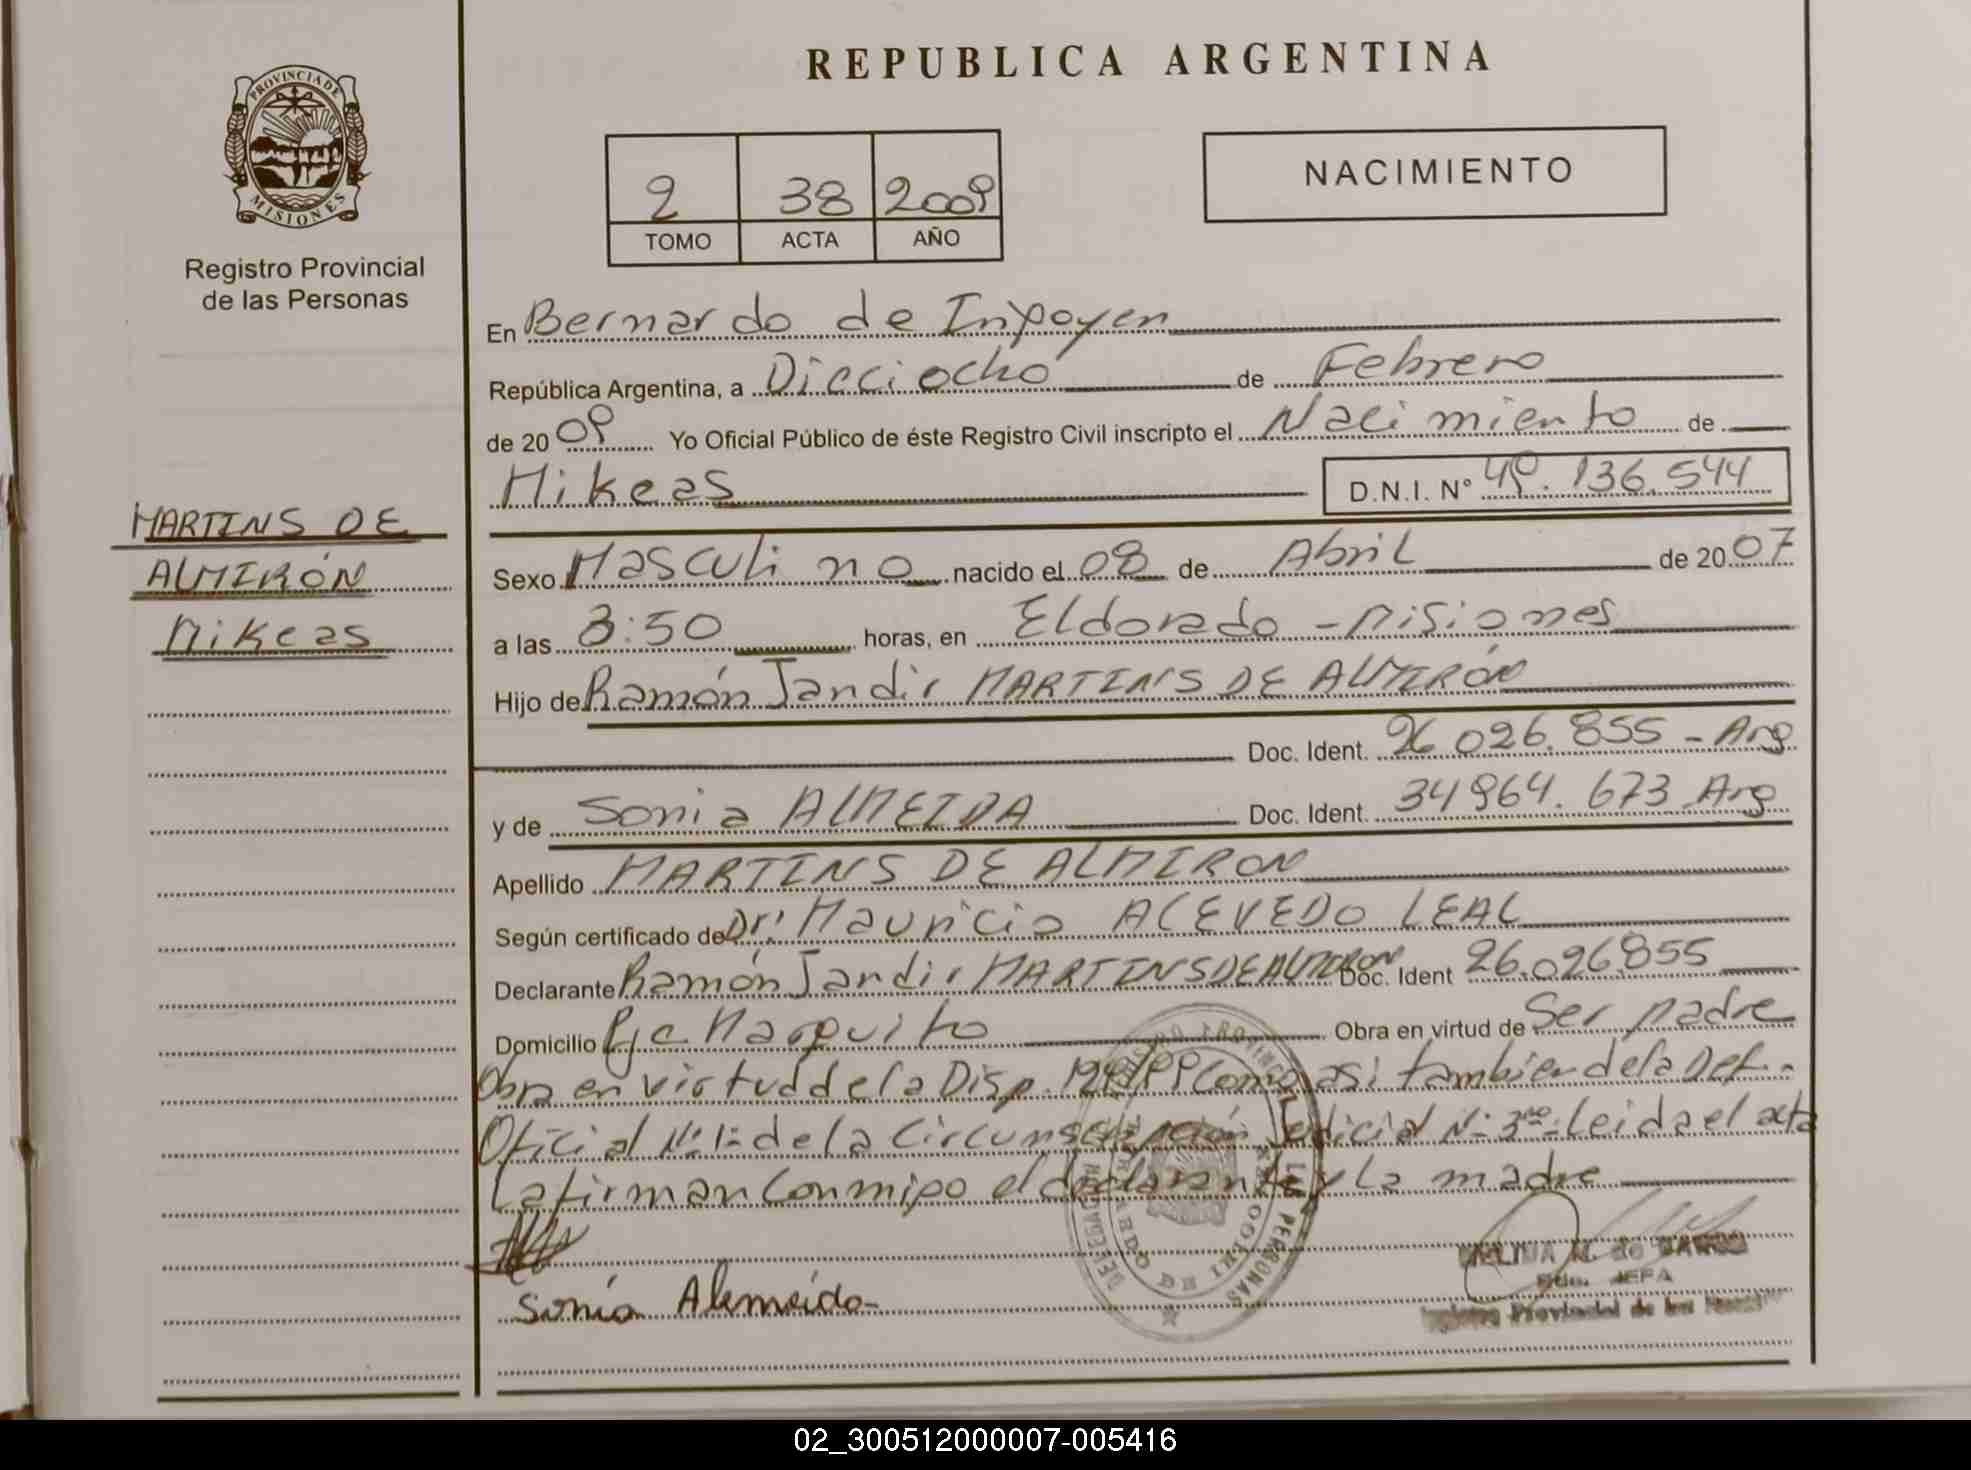 REPUBLICA ARGENTINA
PROVINCIA DE
MISIONES
Registro Provincial
de las Personas
2 38 2009
TOMO ACTA AÑO
NACIMIENTO
En Bernardo de Iripoyen
República Argentina, a Dieciocho de Febrero
de 2009 Yo Oficial Público de éste Registro Civil inscripto el Nacimiento de
Mikeas D.N.I. N° 49.136.544
MARTINS DE
ALMIRÓN
Mikeas
Sexo Masculino nacido el 08 de Abril de 2007
a las 8:50 horas, en Eldorado - Misiones
Hijo de Ramón Jandir MARTINS DE ALMIRÓN
Doc. Ident. 26.026.855 - Arg
y de Sonia ALMEIDA Doc. Ident. 34964.673 Arg
Apellido MARTINS DE ALMIRON
Según certificado de Dr. Mauricio ACEVEDO LEAL
Declarante Ramón Jandir MARTINS DE ALMIRON Doc. Ident 26.026855
Domicilio Pje Marquito Obra en virtud de Ser padre
Obra en virtud de la Disp. Como asi tambien de la Def.
Oficial N: 1: de la Circunscripción Judicial N: 3ra Leida el acta
la firman conmigo el declarante y la madre
Sonia Alemeida
REGISTRO PROVINCIAL DE LAS PERSONAS
DELEGACIÓN BERNARDO DE IRIGOYEN
JEFA
Registro Provincial de las
02_300512000007-005416